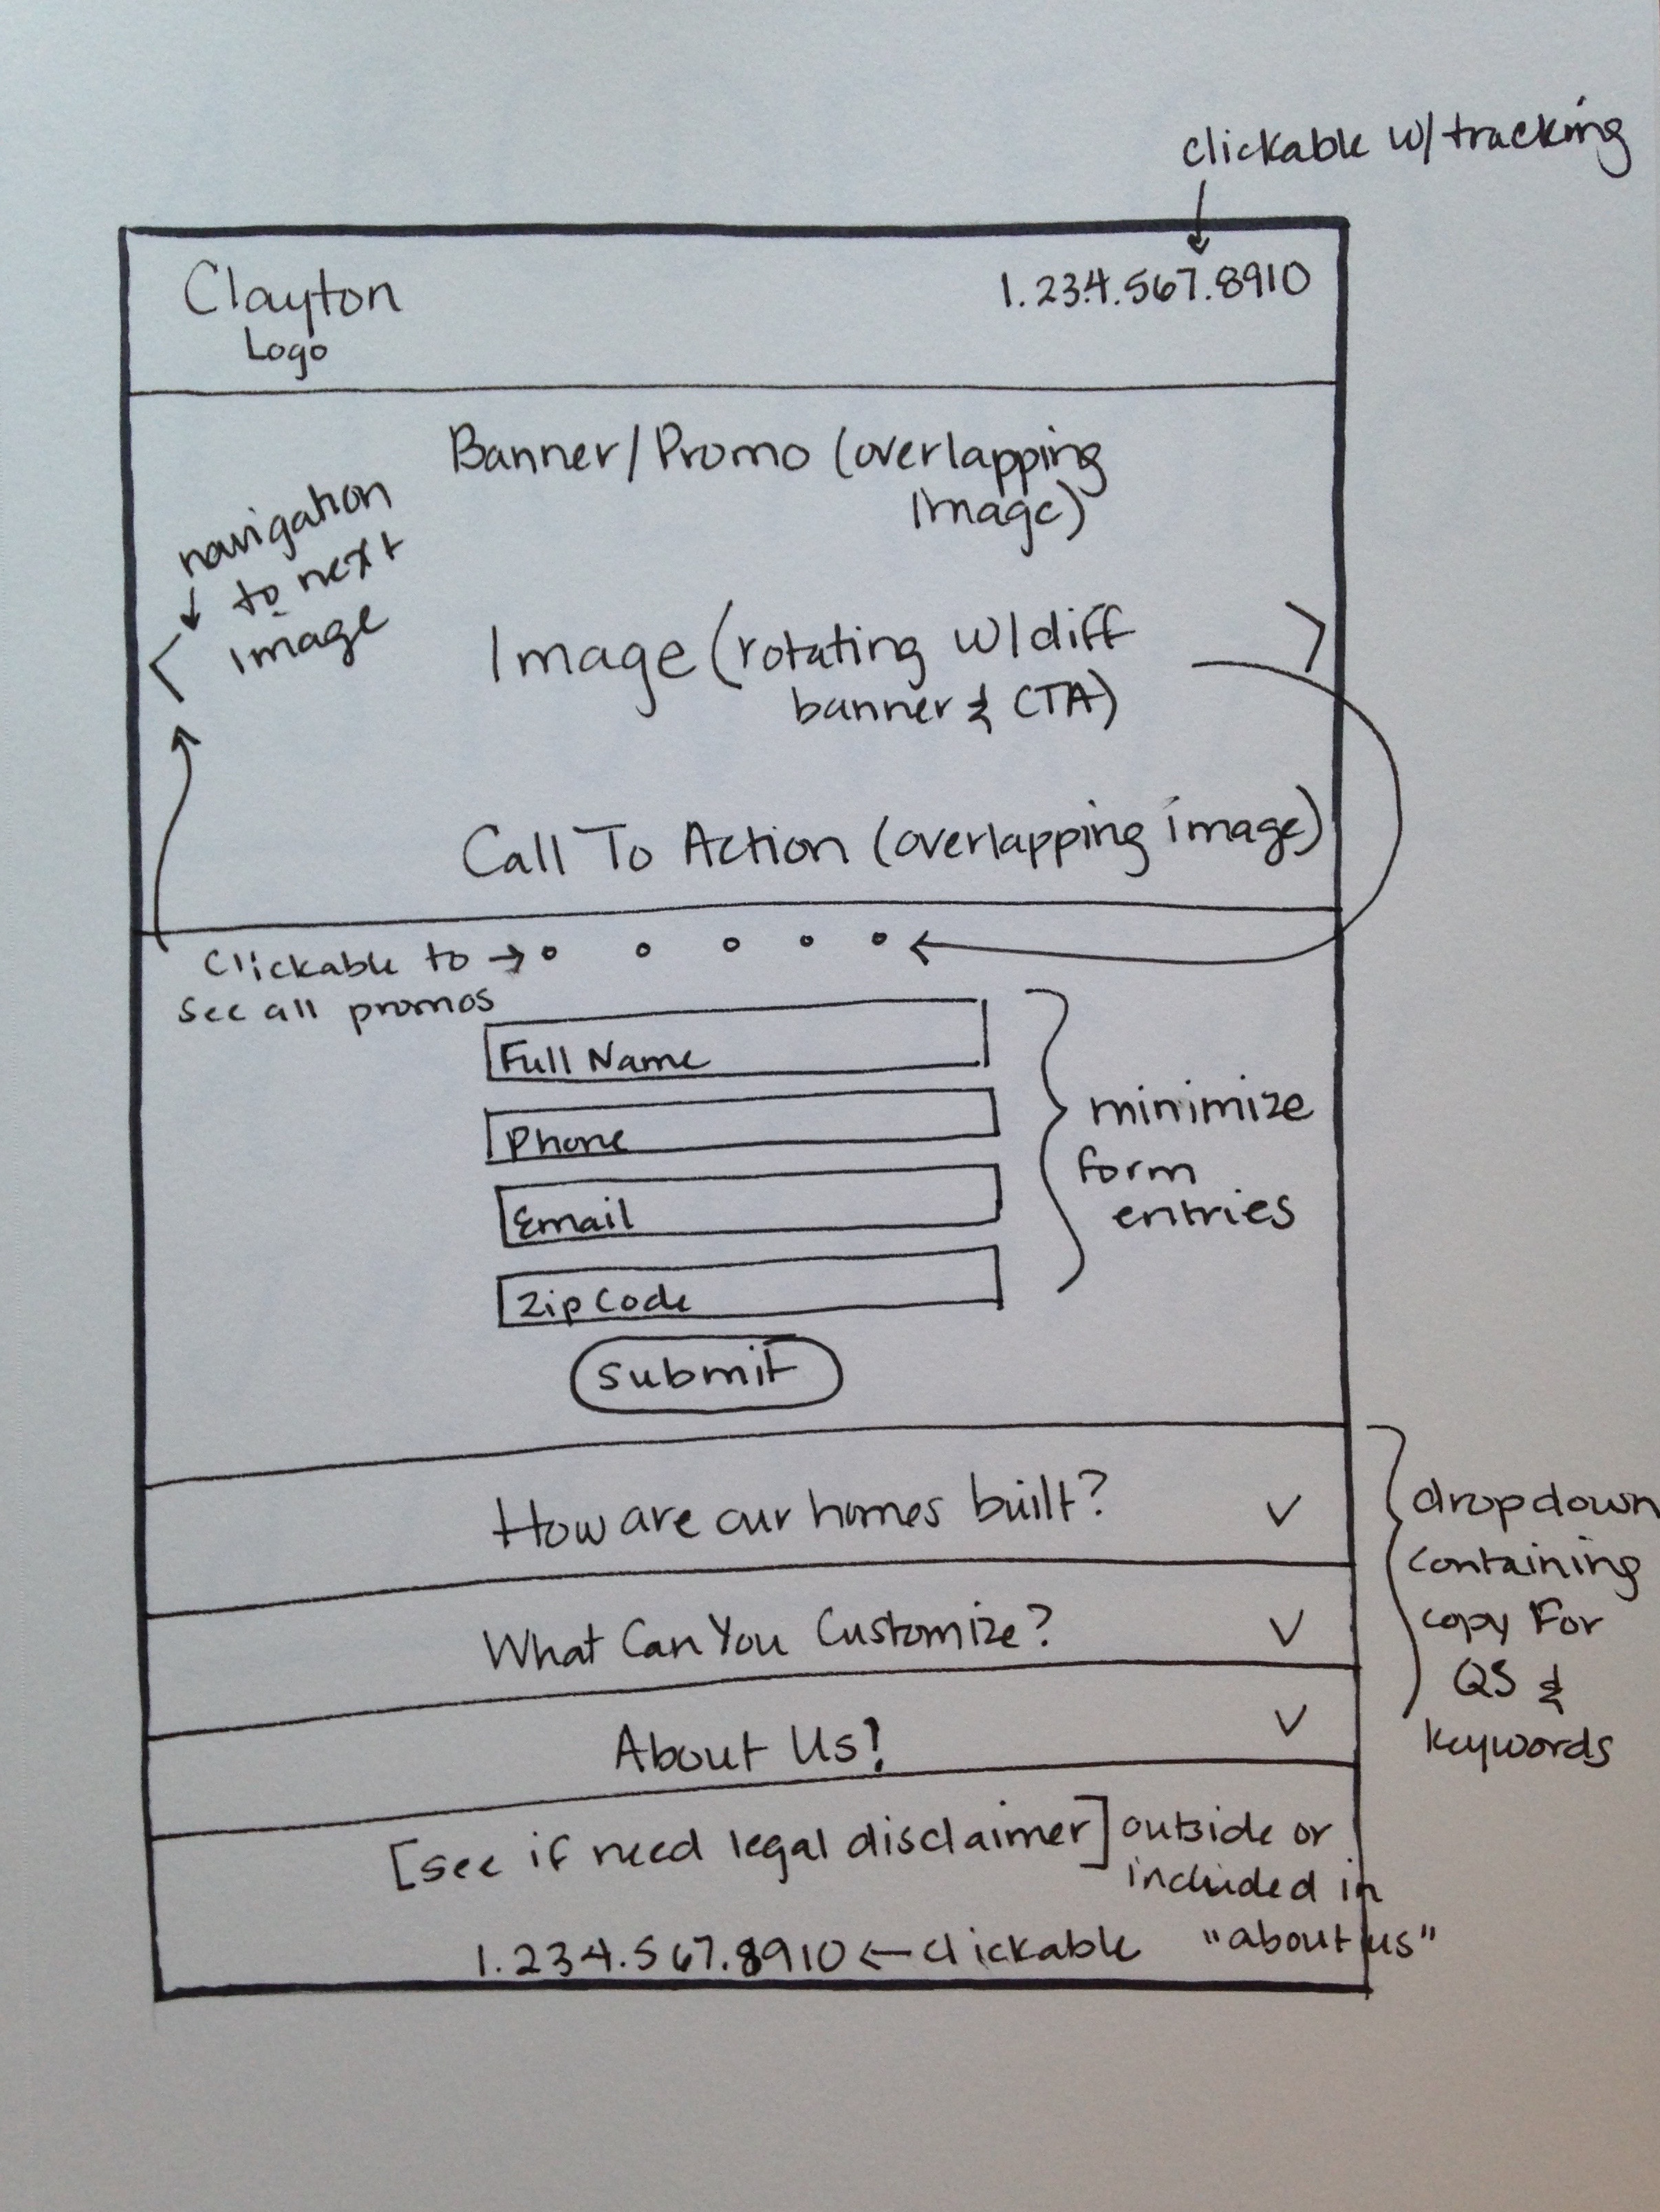 clickable w/ tracking
Clayton
Logo
1.234.567.8910
Banner/Promo (overlapping
Image)
navigation
to next
image
Image (rotating w/diff
banner & CTA)
Call To Action (overlapping image)
Clickable to
see all promos
Full Name
Phone
Email
Zip Code
submit
minimize
form
entries
How are our homes built?
What Can You Customize?
About Us!
dropdown
containing
copy For
QS &
keywords
[see if need legal disclaimer] outside or
included in
"about us"
1.234.567.8910 ← clickable